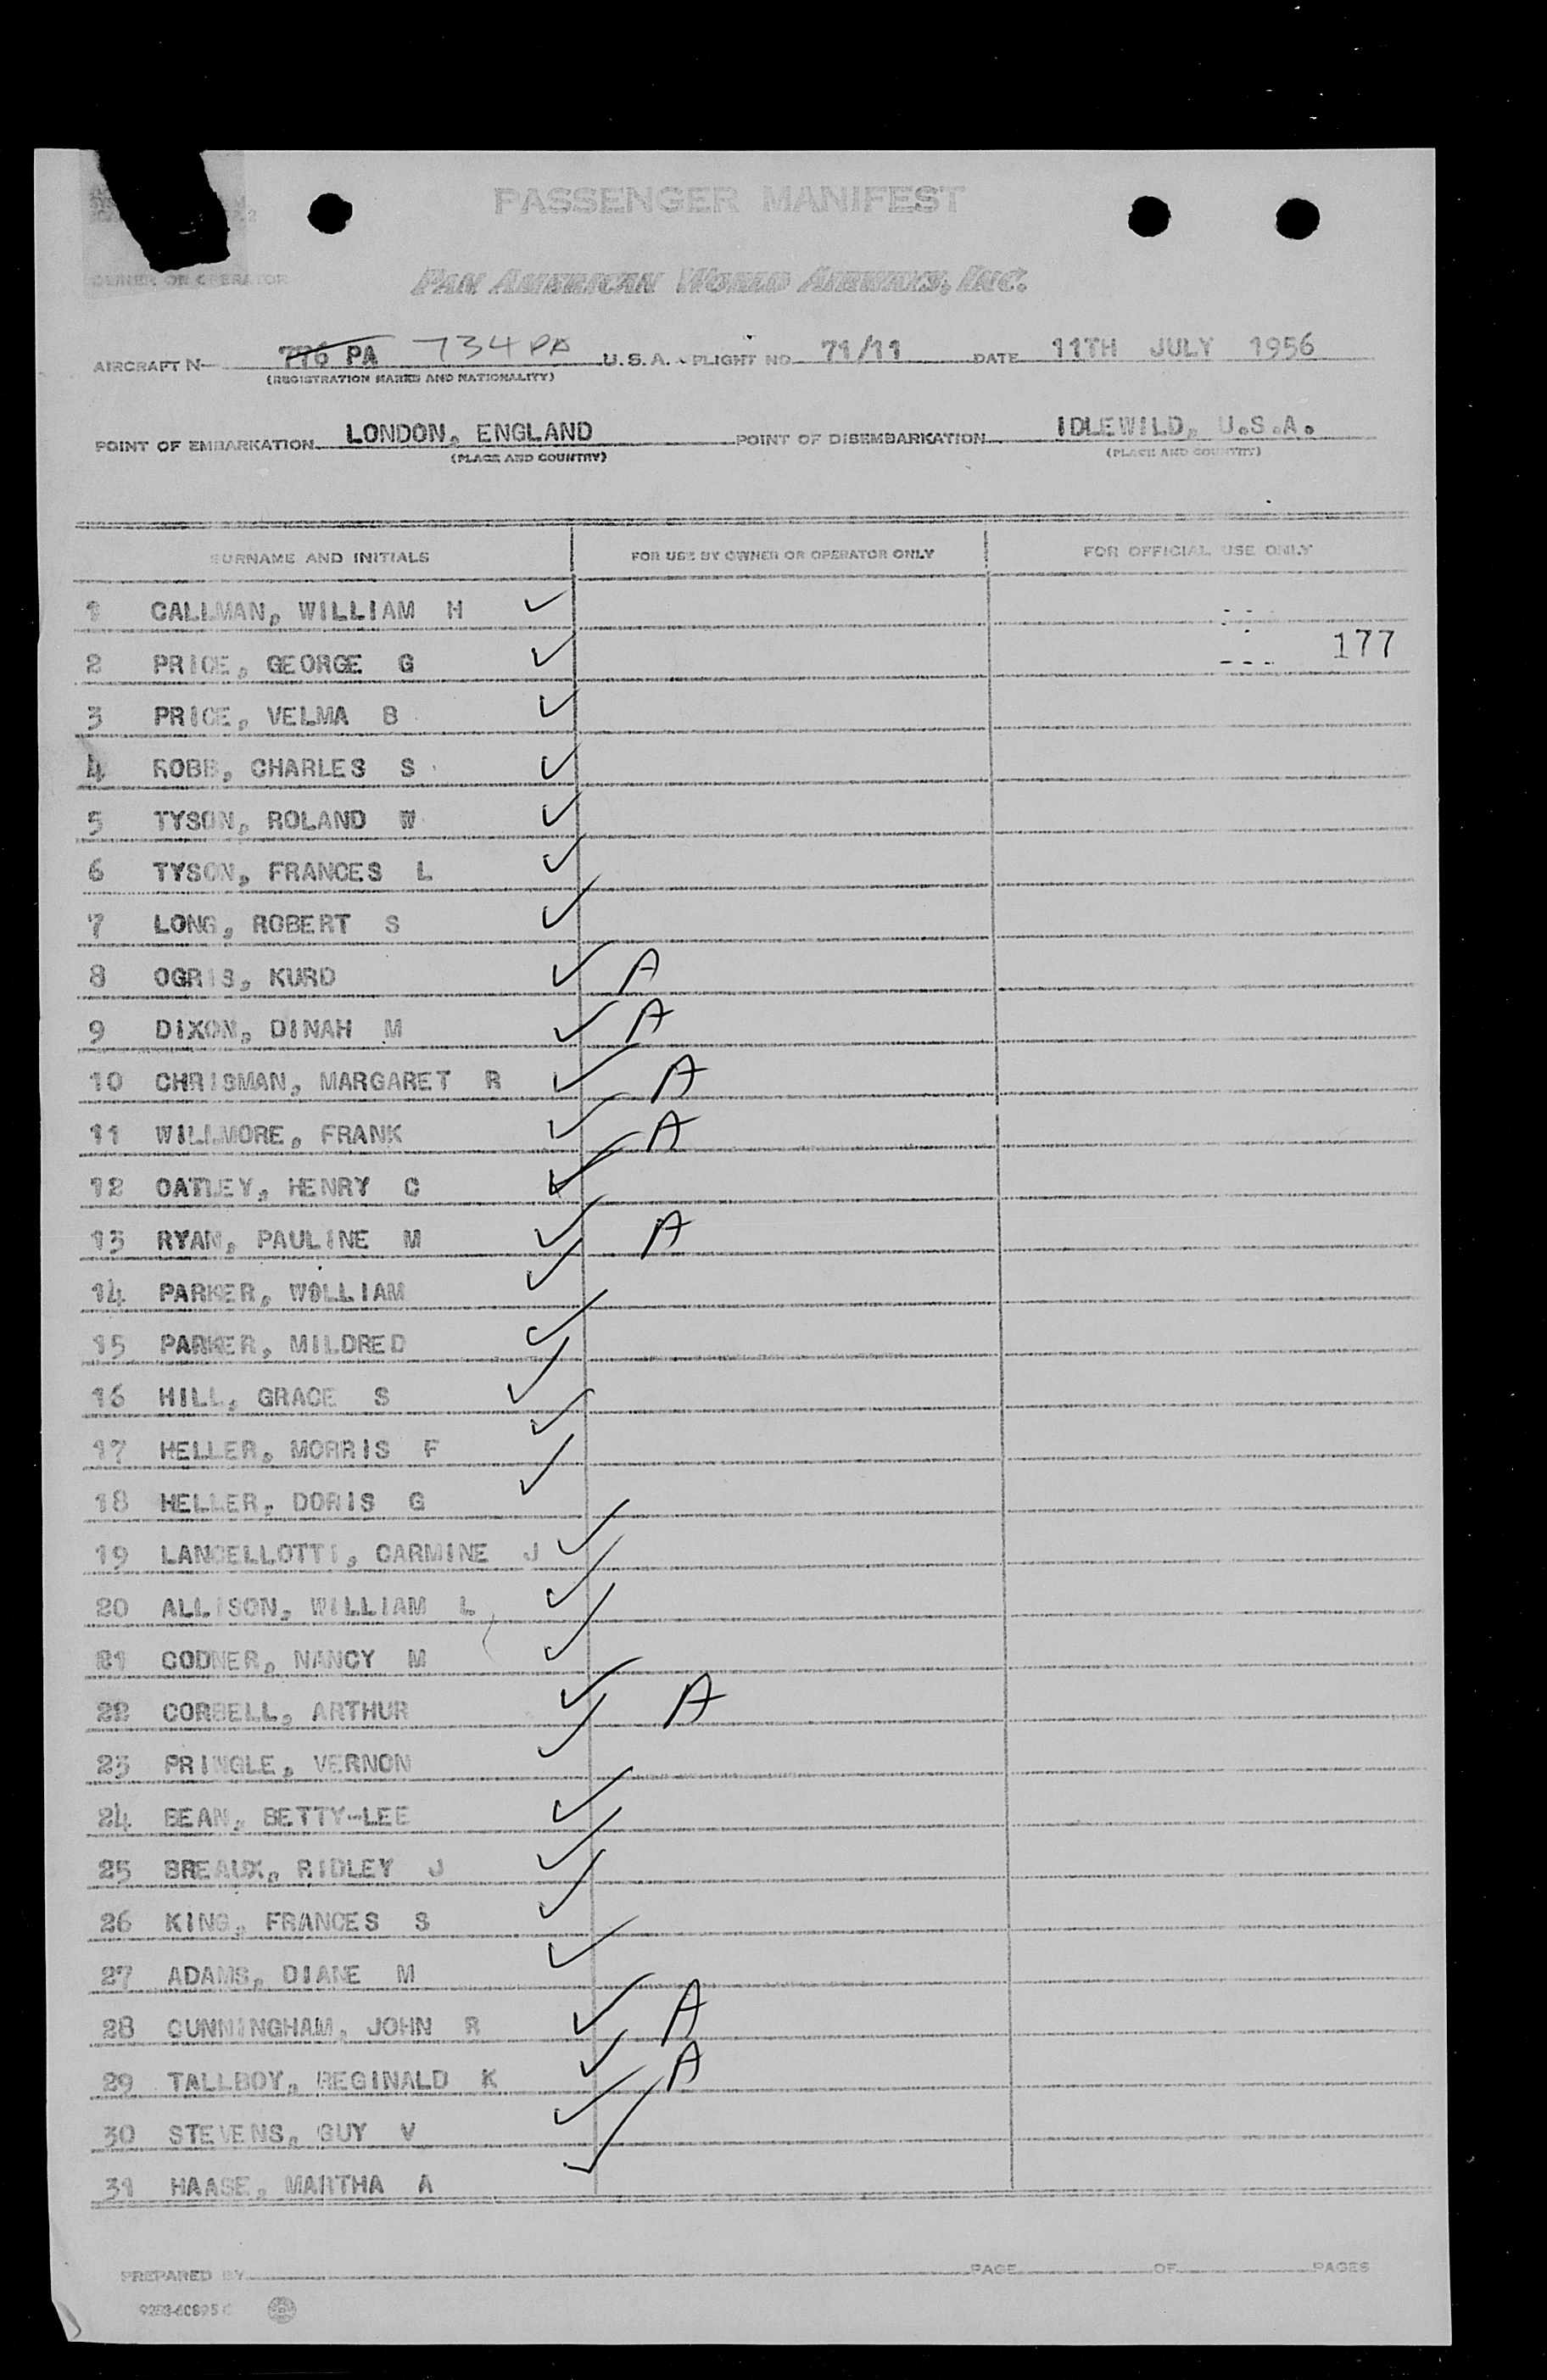 PASSENGER MANIFEST
OWNER OR OPERATOR
PAN AMERICAN WORLD AIRWAYS, INC.
AIRCRAFT N— 776 PA 734 PA U.S.A. - FLIGHT NO. 71/11 DATE 11TH JULY 1956
(REGISTRATION MARKS AND NATIONALITY)
POINT OF EMBARKATION LONDON, ENGLAND POINT OF DISEMBARKATION IDLEWILD, U.S.A.
(PLACE AND COUNTRY) (PLACE AND COUNTRY)
SURNAME AND INITIALS FOR USE BY OWNER OR OPERATOR ONLY FOR OFFICIAL USE ONLY
1 CALLMAN, WILLIAM H ✓
177
2 PRICE, GEORGE G ✓
3 PRICE, VELMA B ✓
4 ROBB, CHARLES S ✓
5 TYSON, ROLAND W ✓
6 TYSON, FRANCES L ✓
7 LONG, ROBERT S ✓
8 OGRIS, KURD ✓ A
9 DIXON, DINAH M ✓ A
10 CHRISMAN, MARGARET R ✓ A
11 WILLMORE, FRANK ✓ A
12 OATLEY, HENRY C ✓
13 RYAN, PAULINE M ✓ A
14 PARKER, WOLLIAM ✓
15 PARKER, MILDRED ✓
16 HILL, GRACE S ✓
17 HELLER, MORRIS F ✓
18 HELLER, DORIS G ✓
19 LANCELLOTTI, CARMINE J ✓
20 ALLISON, WILLIAM L ✓
21 CODNER, NANCY M ✓
22 CORBELL, ARTHUR ✓ A
23 PRINGLE, VERNON ✓
24 BEAN, BETTY-LEE ✓
25 BREAUX, RIDLEY J ✓
26 KING, FRANCES S ✓
27 ADAMS, DIANE M ✓
28 CUNNINGHAM, JOHN R ✓ A
29 TALLBOY, REGINALD K ✓ A
30 STEVENS, GUY V ✓
31 HAASE, MARTHA A ✓
PREPARED BY PAGE OF PAGES